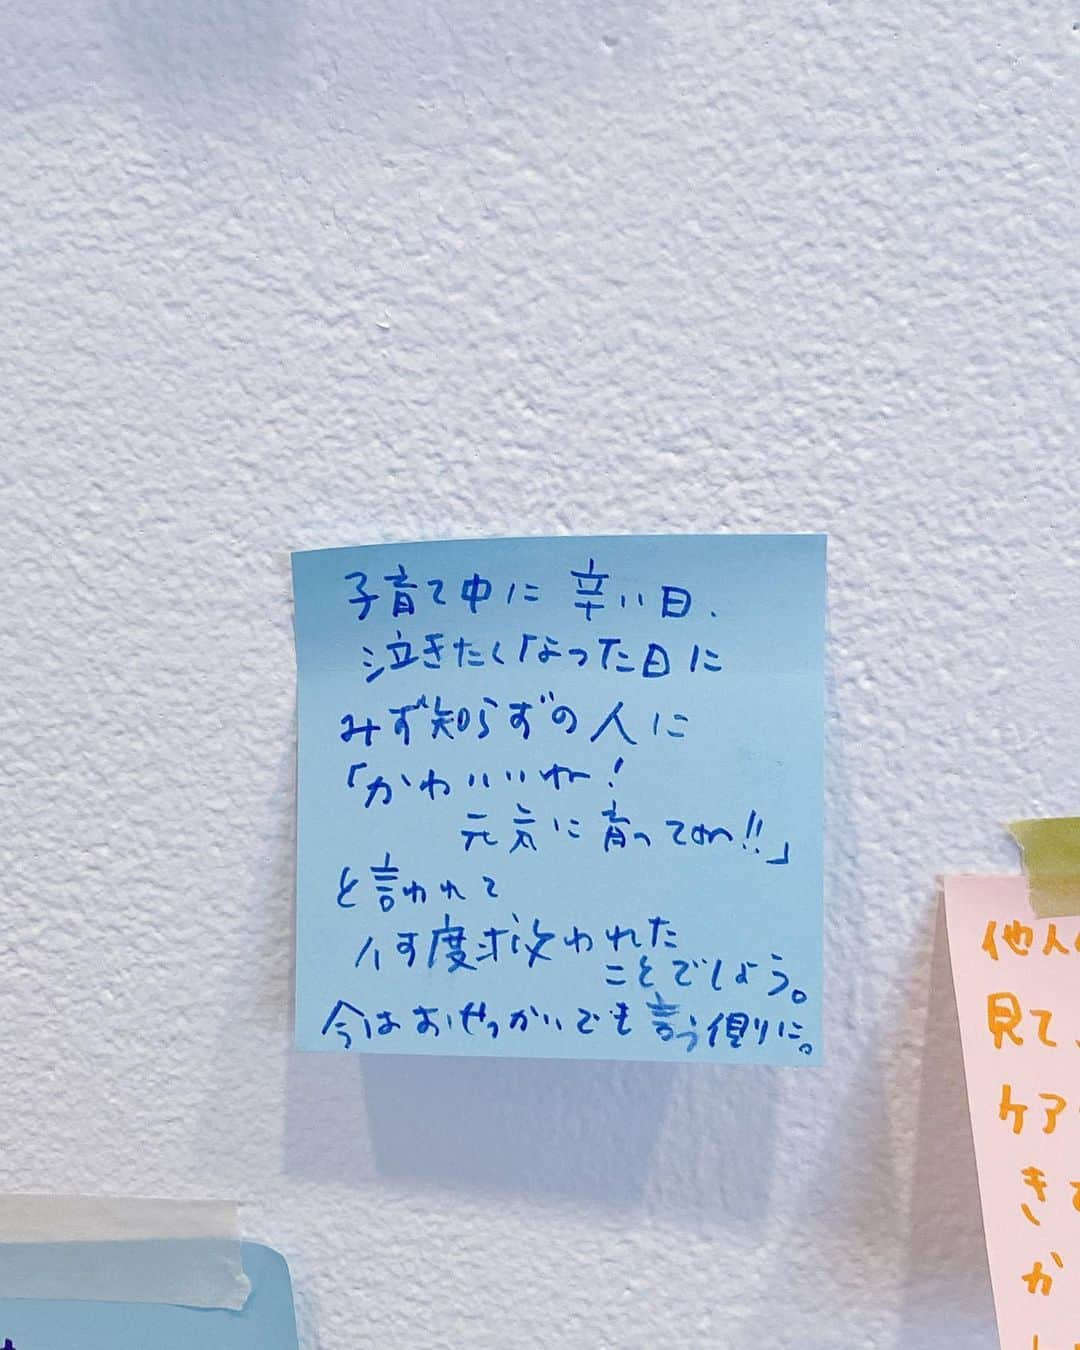 子育て中に 辛い日、
泣きたくなった日に
みず知らずの人に
「かわいいね!
元気に育ってね!!」
と言われて
何度救われた
ことでしょう。
今はおせっかいでも言う側に。
他人
見て、
ケア
き
か